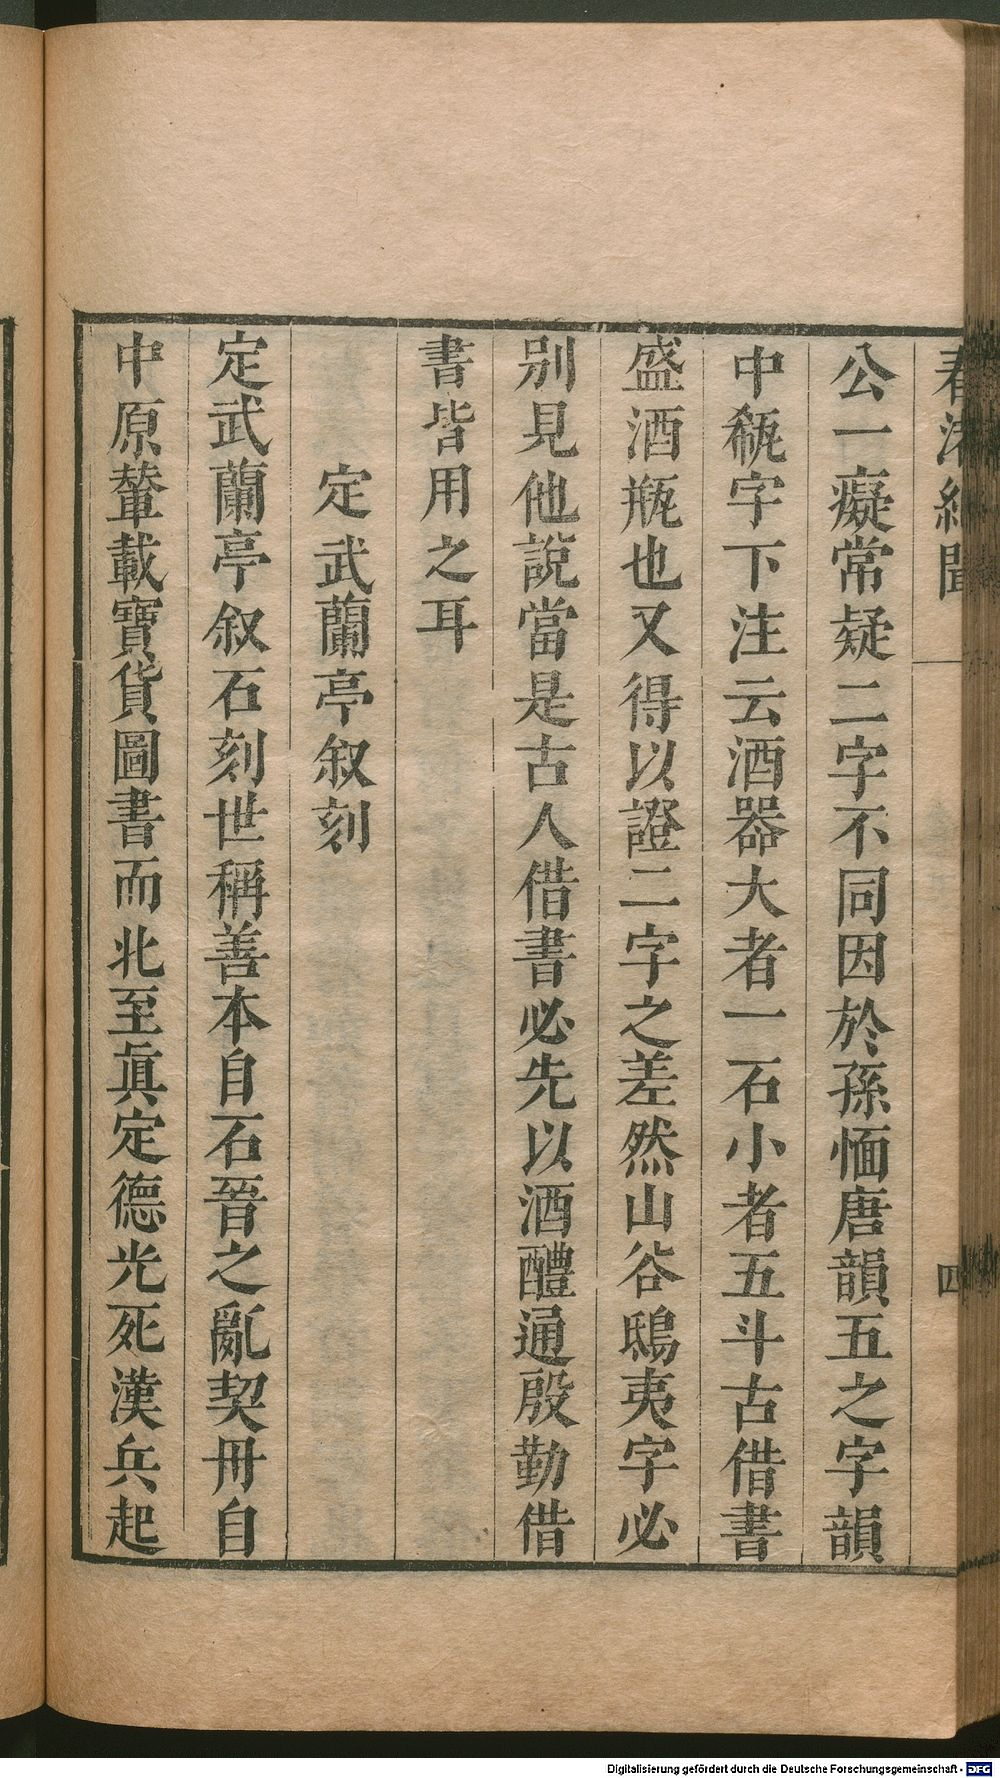 春渚紀聞
四
公一癡常疑二字不同因於孫愐唐韻五之字韻
中瓻字下注云酒器大者一石小者五斗古借書
盛酒瓶也又得以證二字之差然山谷鴟夷字必
别見他說當是古人借書必先以酒醴通殷勤借
書皆用之耳
定武蘭亭叙刻
定武蘭亭叙石刻世稱善本自石晉之亂契丹自
中原輦載寶貨圖書而北至眞定德光死漢兵起
Digitalisierung gefördert durch die Deutsche Forschungsgemeinschaft - DFG